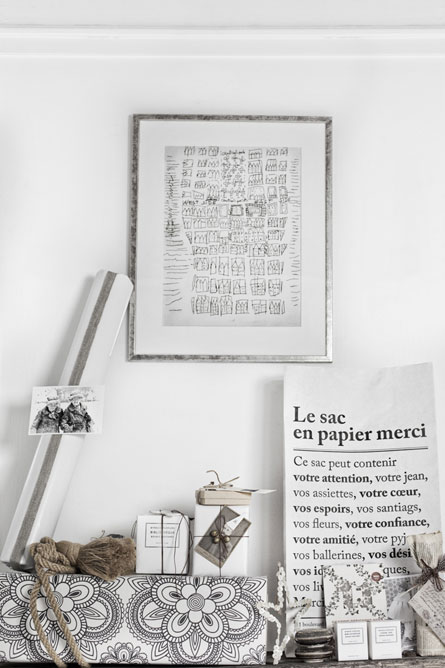 Le sac
en papier merci
Ce sac peut contenir
votre attention, votre jean,
vos assiettes, votre cœur,
vos espoirs, vos santiags,
vos fleurs, votre confiance,
votre amitié, votre pyj
vos ballerines, vos dési
vos id ques,
vos li